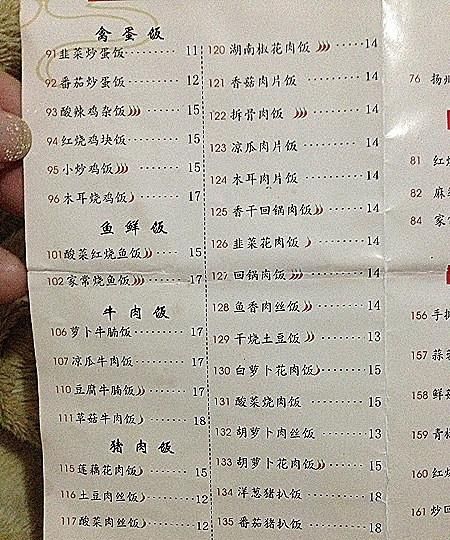 禽蛋饭
91 韭菜炒蛋饭 11
92 番茄炒蛋饭 12
93 酸辣鸡杂饭 15
94 红烧鸡块饭 15
95 小炒鸡饭 15
96 木耳烧鸡饭 17
鱼鲜饭
101 酸菜红烧鱼饭 15
102 家常烧鱼饭 17
牛肉饭
106 萝卜牛腩饭 17
107 凉瓜牛肉饭 17
110 豆腐牛腩饭 17
111 草菇牛肉饭 18
猪肉饭
115 莲藕花肉饭 15
116 土豆肉丝饭 12
117 酸菜肉丝饭 12
120 湖南椒花肉饭 14
121 香菇肉片饭 14
122 拆骨肉饭 14
123 凉瓜肉片饭 14
124 木耳肉片饭 14
125 香干回锅肉饭 14
126 韭菜花肉饭 14
127 回锅肉饭 14
128 鱼香肉丝饭 14
129 干烧土豆饭 13
130 白萝卜花肉饭 15
131 酸菜烧肉饭 15
132 胡萝卜肉丝饭 13
133 胡萝卜花肉饭 15
134 洋葱猪扒饭 18
135 番茄猪扒饭 18
76 扬州
81 红
82 麻
84 家
156 手
157 蒜
158 鲜
159 青
160 红
161 炒